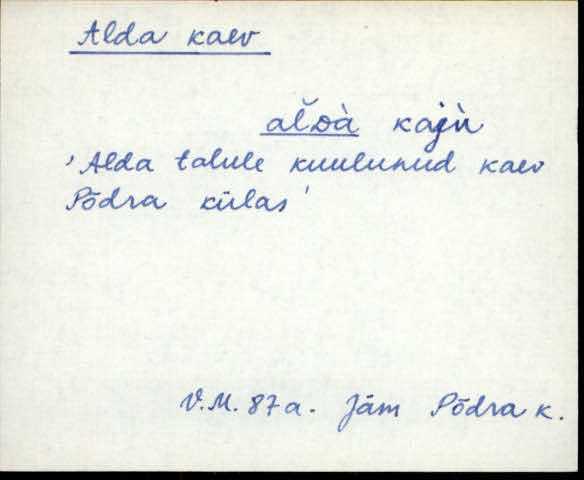 Alda kaev
al̆ᴅà kajù
'Alda talule kuulunud kaev
Põdra külas'
V.M. 87 a. Jäm Põdra k.